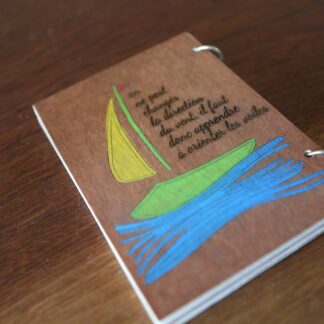 on
ne peut
changer
la direction
du vent, il faut
donc apprendre
à orienter les voiles